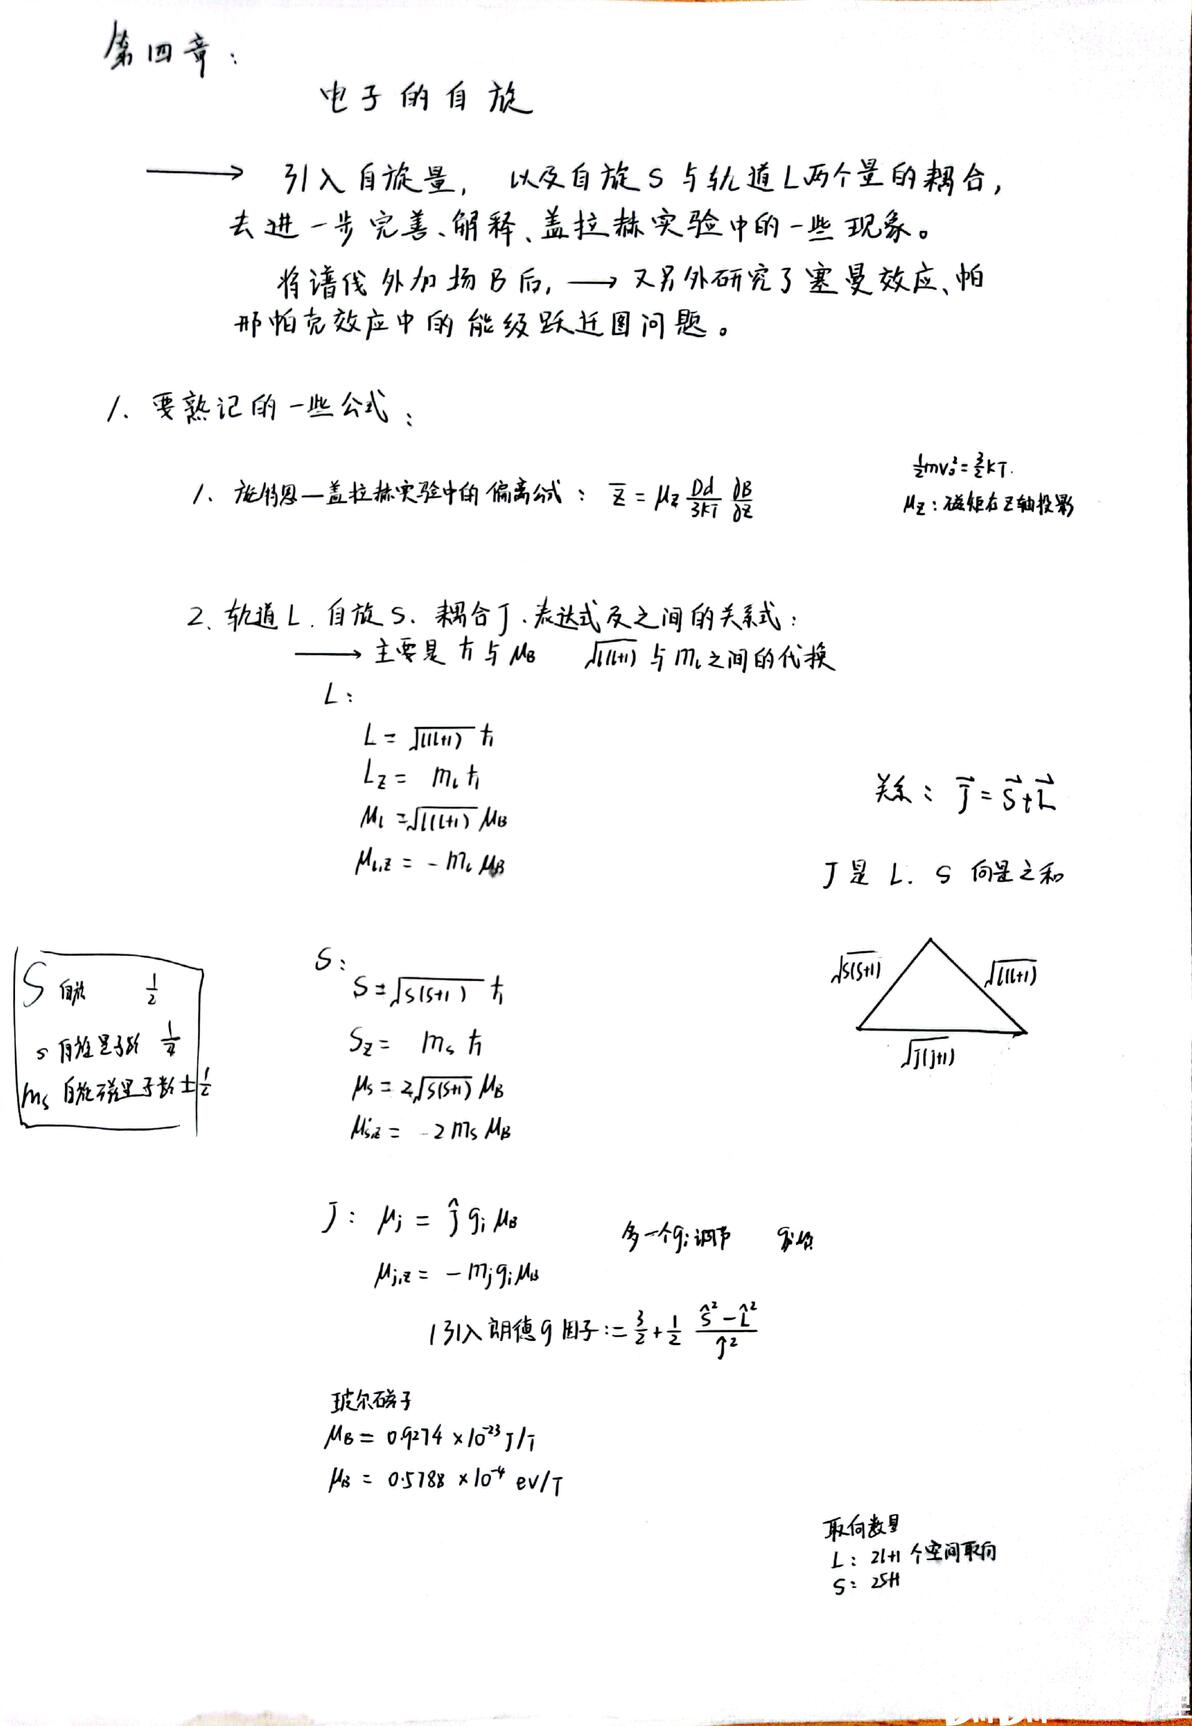 第四章：
电子的自旋
→ 引入自旋量， 以及自旋S与轨道L两个量的耦合，
去进一步完善、解释、盖拉赫实验中的一些现象。
将谱线外加场B后，→ 又另外研究了塞曼效应、帕
邢帕克效应中的能级跃迁图问题。
1、要熟记的一些公式：
1、施特恩—盖拉赫实验中的偏离公式： z̄ = μz Dd/3kT ∂B/∂z
½mv₀² = 3/2 kT.
μz：磁矩在Z轴投影
2、轨道L、自旋S、耦合J、表达式及之间的关系式：
→ 主要是 ħ与μB √l(l+1) 与 ml之间的代换
L：
L = √l(l+1) ħ
Lz = ml ħ
μl = √l(l+1) μB
μl,z = - ml μB
关系： J⃗ = S⃗ + L⃗
J是 L、S 向量之和
√s(s+1) √l(l+1)
√j(j+1)
S 自旋 1/2
s 自旋量子数 1/4
ms 自旋磁量子数 ±1/2
S：
S = √s(s+1) ħ
Sz = ms ħ
μs = 2√s(s+1) μB
μs,z = -2 ms μB
J： μj = ĵ gj μB
多一个gj调节
μj,z = - mj gj μB
引入朗德g因子：= 3/2 + 1/2 (Ŝ² - L̂²)/Ĵ²
玻尔磁子
μB = 0.9274 ×10⁻²³ J/T
μB = 0.5788 ×10⁻⁴ ev/T
取向数量
L： 2l+1 个空间取向
S： 2S+1